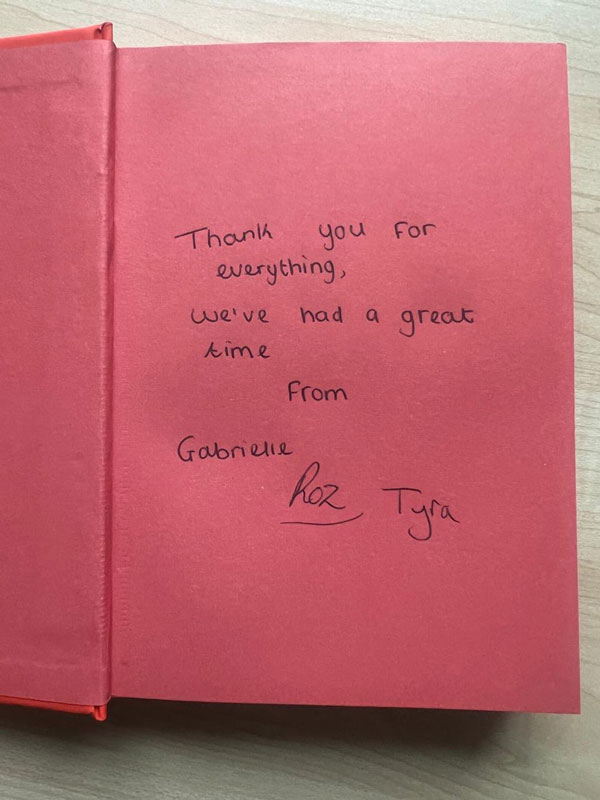 Thank you for
everything,
we've had a great
time
From
Gabrielle
Roz Tyra